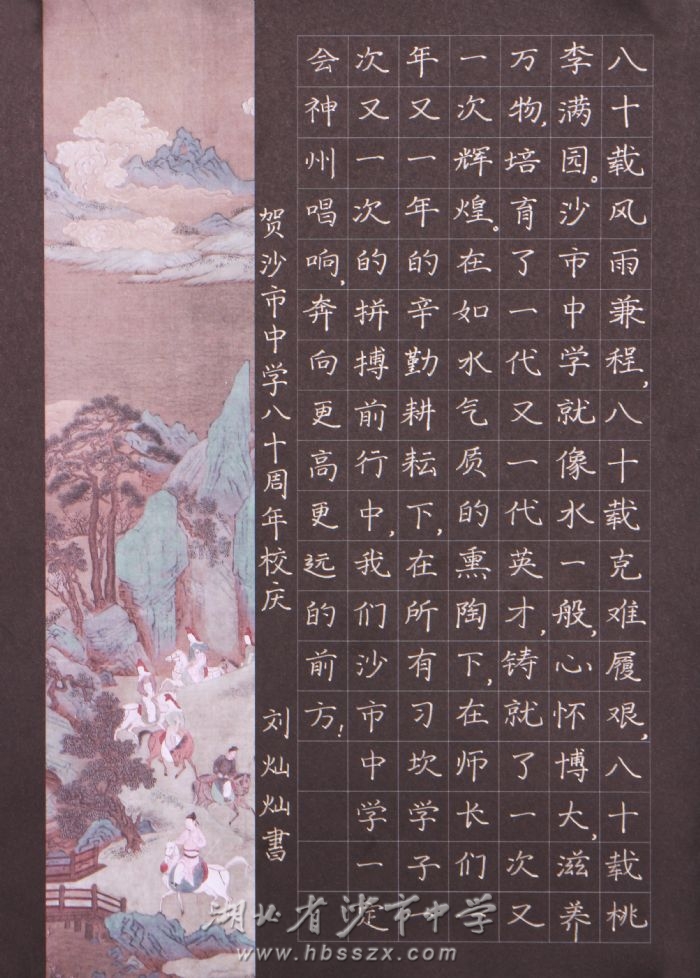 八十载风雨兼程,八十载克难履艰,八十载桃
李满园。沙市中学就像水一般,心怀博大,滋养
万物,培育了一代又一代英才,铸就了一次又
一次辉煌。在如水气质的熏陶下,在师长们一
年又一年的辛勤耕耘下,在所有习坎学子一
次又一次的拼搏前行中,我们沙市中学一定
会神州唱响,奔向更高更远的前方!
贺沙市中学八十周年校庆 刘灿灿書
湖北省沙市中学
www.hbsszx.com